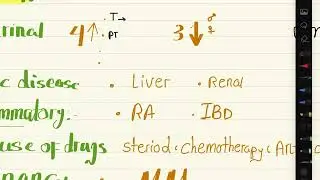 rinal 4↑ • T → • PT 3↓ ♂ ♀
c disease • Liver • Renal
mmatory. • RA • IBD
use of drugs steriod, Chemotherapy, An